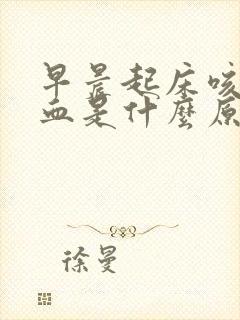 早晨起床咳
血是什麼原
徐曼